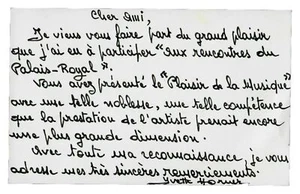 Cher Ami,
Je viens vous faire part du grand plaisir
que j'ai eu à participer "aux rencontres du
Palais-Royal".
Vous avez présenté le "Plaisir de la Musique"
avec une telle noblesse, une telle compétence
que la prestation de l'artiste prenait encore
une plus grande dimension.
Avec toute ma reconnaissance, je vous
adresse mes très sincères remerciements.
Yvette Horner